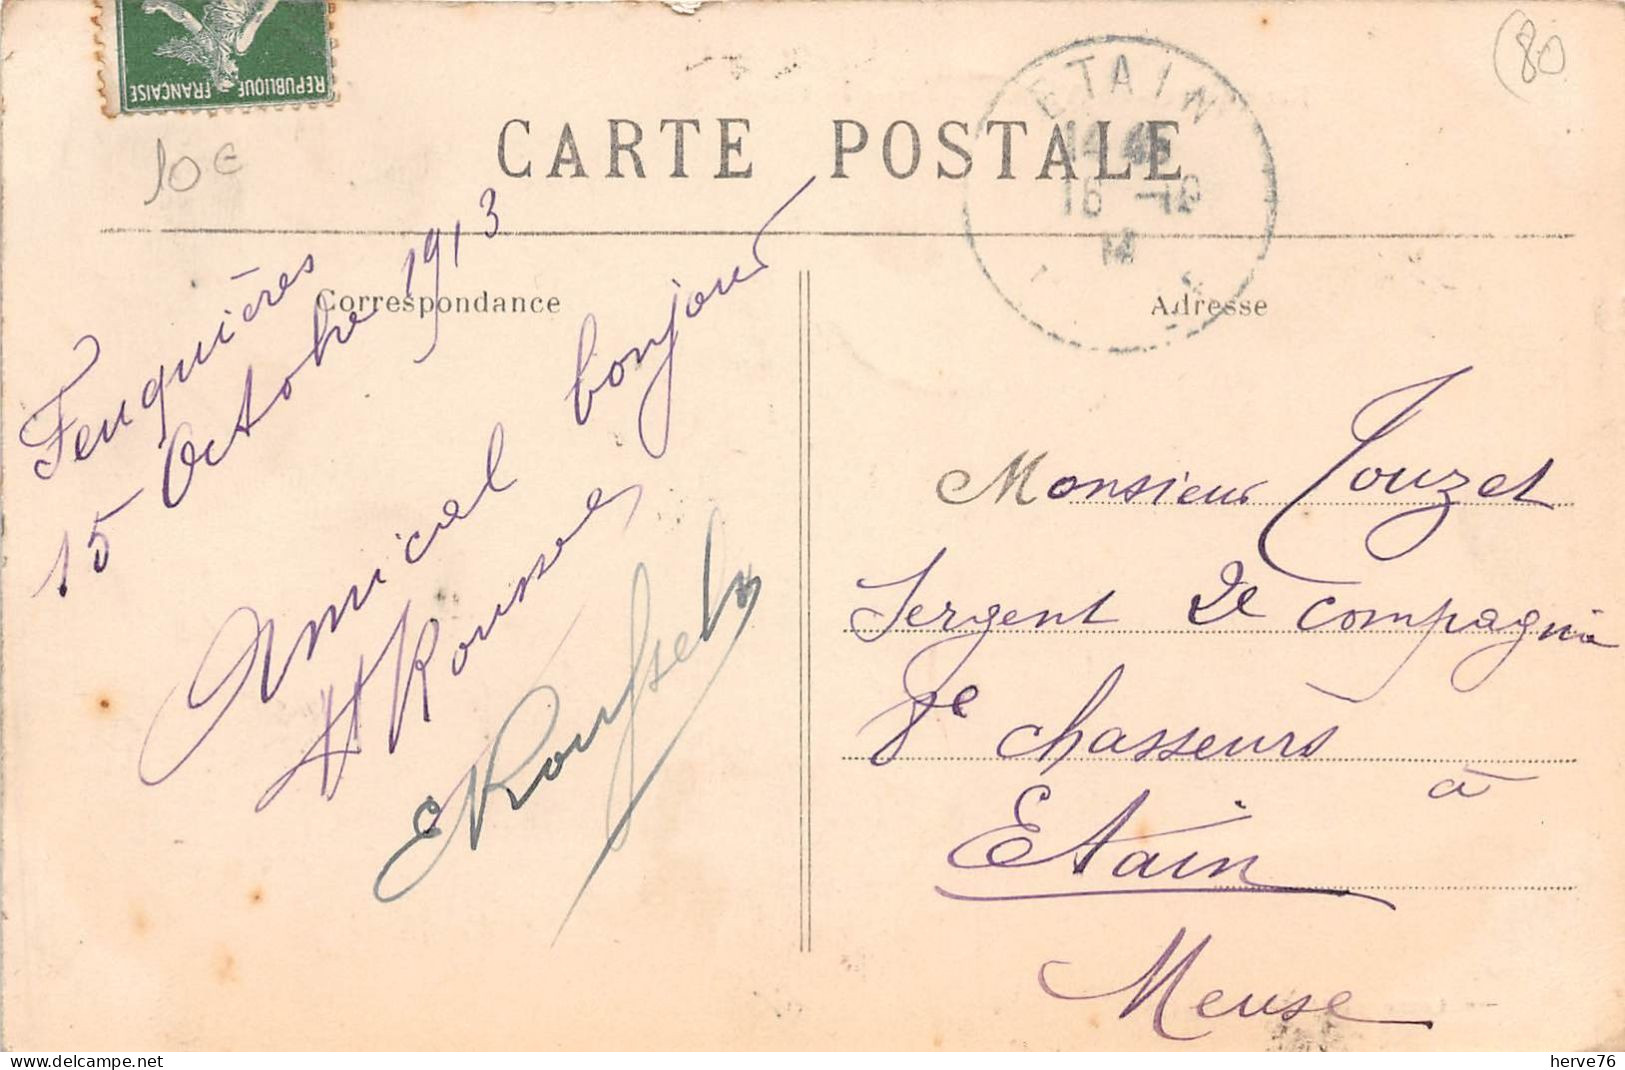 REPUBLIQUE FRANÇAISE
10€
80
ETAIN
14 45
16 -10
13
CARTE POSTALE
Correspondance
Adresse
Feuquières
15 Octobre 1913
Amical bonjour
H Roussel
E Roussel
Monsieur Jouzet
Sergent 2e compagnie
8e chasseurs
à
Etain
Meuse
delcampe.net
herve76